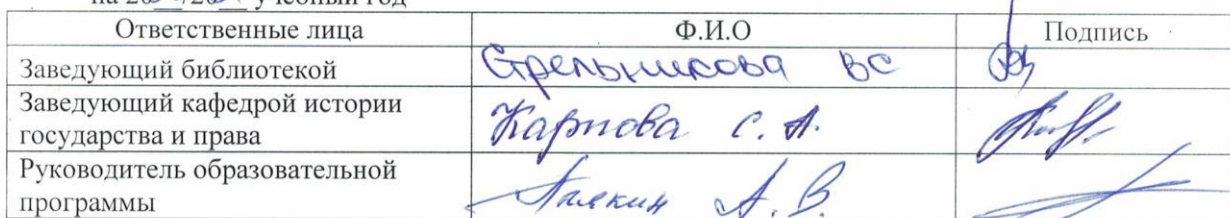 на 20 /20 учебный год
Ответственные лица Ф.И.О Подпись
Заведующий библиотекой Стрельникова ВС
Заведующий кафедрой истории
государства и права Карпова С. А.
Руководитель образовательной
программы А. В.